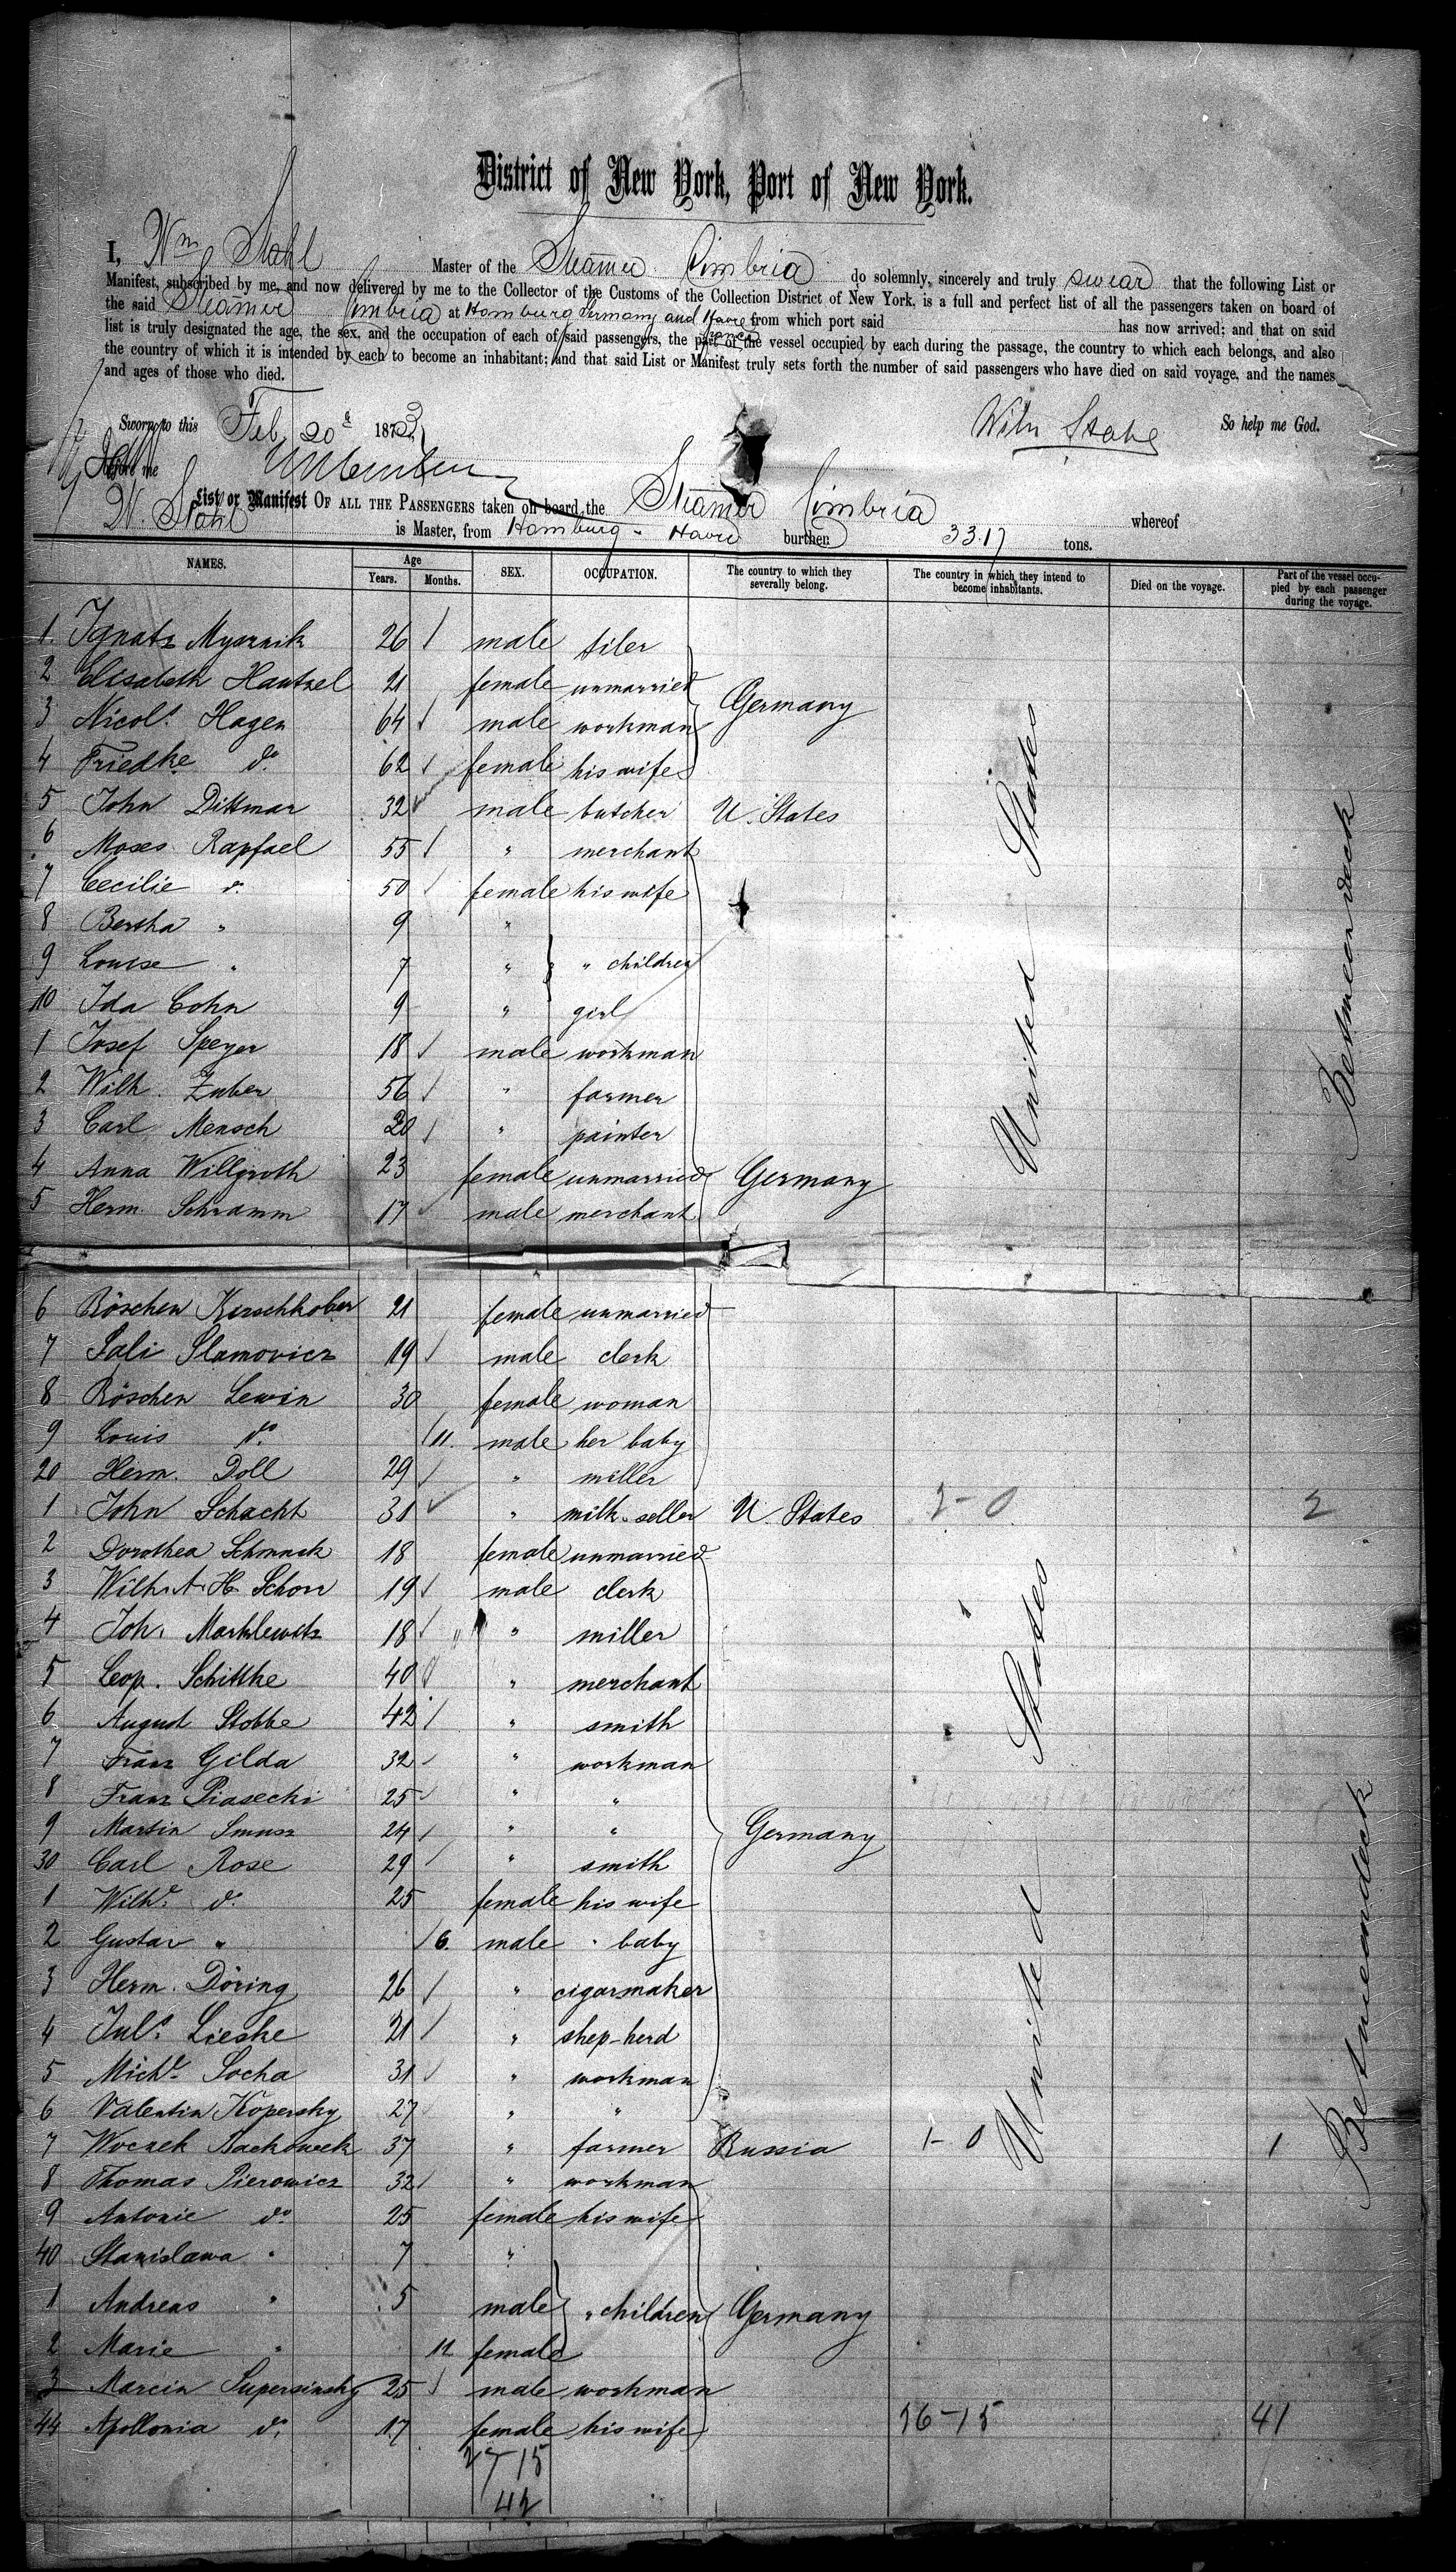 District of New York, Port of New York.
I, Wm Stahl Master of the Steamer Cimbria do solemnly, sincerely and truly swear that the following List or
Manifest, subscribed by me, and now delivered by me to the Collector of the Customs of the Collection District of New York, is a full and perfect list of all the passengers taken on board of
the said Steamer Cimbria at Hamburg Germany and Havre France from which port said has now arrived; and that on said
list is truly designated the age, the sex, and the occupation of each of said passengers, the part of the vessel occupied by each during the passage, the country to which each belongs, and also
the country of which it is intended by each to become an inhabitant; and that said List or Manifest truly sets forth the number of said passengers who have died on said voyage, and the names
and ages of those who died.
Sworn to this Feb 20th 1873 So help me God.
Before me Wilh Stahl
List or Manifest OF ALL THE PASSENGERS taken on board the Steamer Cimbria whereof
W. Stahl is Master, from Hamburg - Havre burthen 3317 tons.
NAMES. Age Years. Months. SEX. OCCUPATION. The country to which they severally belong. The country in which they intend to become inhabitants. Died on the voyage. Part of the vessel occupied by each passenger during the voyage.
1. Ignatz 26 male tiler
2 Elisabeth Hautzel 21 female unmarried
3 Nicols. Hagen 64 male workman Germany
4 Friedke do. 62 female his wife
5 John Dittmar 32 male butcher U. States
6 Moses Rapfael 55 " merchant
7 Cecilie do. 50 female his wife
8 Bertha " 9 "
9 Louise " 7 " " children
10 Ida Cohn 9 " girl
1 Josef Speyer 18 male workman
2 Wilh. Zuber 56 " farmer
3 Carl Mensch 20 " painter
4 Anna Willgroth 23 female unmarried Germany
5 Herm. Schramm 17 male merchant
United States
Between deck
6 Röschen Kirschkober 21 female unmarried
7 Sali Slamovicz 19 male clerk
8 Röschen Lewin 30 female woman
9 Louis do. 11. male her baby
20 Herm. Doll 29 " miller
1 John Schacht 31 " milk-seller U. States 2-0 2
2 Dorothea 18 female unmarried
3 Wilh. A. H. Schorr 19 male clerk
4 Joh. Marklewitz 18 " miller
5 Leop. Schittke 40 " merchant
6 August Stobbe 42 " smith
7 Franz Gilda 32 " workman
8 Franz Piasecki 25 " "
9 Martin 24 " " Germany
30 Carl Rose 29 " smith
1 Wilhe. do. 25 female his wife
2 Gustav " 6. male " baby
3 Herm. Döring 26 " cigarmaker
4 Juls. Lieske 21 " shep-herd
5 Michl. Socha 31 " workman
6 Valentin Kopersky 27 " "
7 Woczek 37 " farmer Russia 1-0 1
8 Thomas Pierowicz 32 " workman
9 Antonie do. 25 female his wife
40 Stanislawa " 7 "
1 Andreas " 5 male " children Germany
2 Marie " 11 female
3 Marcin Supersinsky 25 male workman
44 Apollonia do. 17 female his wife 26-15 41
27 15
42
United States
Betweendeck